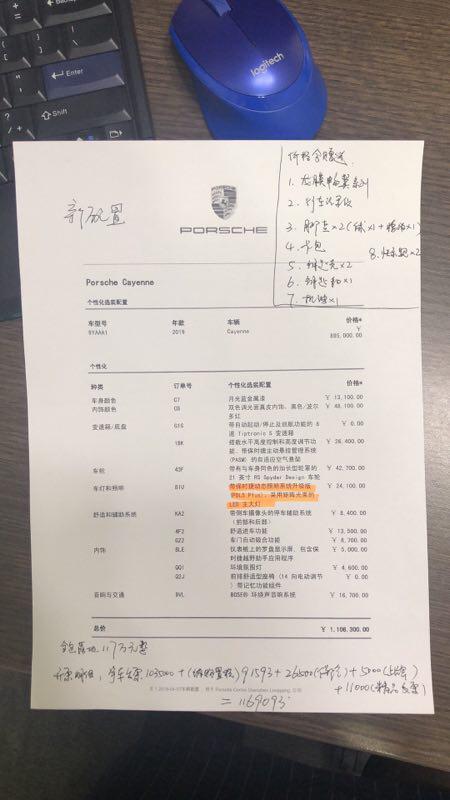 Enter
Shift
logitech
新配置
PORSCHE
价格含赠送
1. 龙膜畅翼系列
2. 行车记录仪
3. 脚垫×2
4. 卡包
8. ×2
5. 钥匙壳×2
6. 钥匙扣×1
7. ×1
Porsche Cayenne
个性化选装配置
车型号 年款 车辆 价格*
9YAAA1 2019 Cayenne ¥ 895,000.00
个性化
种类 订单号 个性化选装配置 价格*
车身颜色 C7 月光蓝金属漆 ¥ 13,100.00
内饰颜色 双色调光面真皮内饰，黑色/波尔 ¥ 48,100.00
多红
变速箱/底盘 G1S 带自动起动/停止及巡航功能的 8 ¥ 0.00
速 Tiptronic S 变速箱
1BK 搭载水平高度控制和高度调节功 ¥ 26,400.00
能、带保时捷主动悬挂管理系统
(PASM) 的自适应空气悬架
车轮 43F 带有与车身同色的加长型轮罩的 ¥ 42,700.00
21 英寸 RS Spyder Design 车轮
车灯和照明 8IU 带保时捷动态照明系统升级版 ¥ 24,100.00
(PDLS Plus)，采用矩阵光束的
LED 主大灯
舒适和辅助系统 KA2 带倒车摄像头的停车辅助系统 ¥ 8,400.00
(前部和后部)
4F2 舒适进车功能 ¥ 13,500.00
GZ2 车门自动吸合功能 ¥ 8,700.00
内饰 8LE 仪表板上的罗盘显示屏，包含保 ¥ 5,000.00
时捷越野助手应用程序
QQ1 环境氛围灯 ¥ 4,600.00
Q2J 前排舒适型座椅 (14 向电动调节 ¥ 0.00
) 带记忆功能组件
音响与交通 9VL BOSE® 环绕声音响系统 ¥ 16,700.00
总价 ¥ 1,106,300.00
全包落地117万元整
+ 91593 + 26500 + 5000
+ 11000
= 1169093